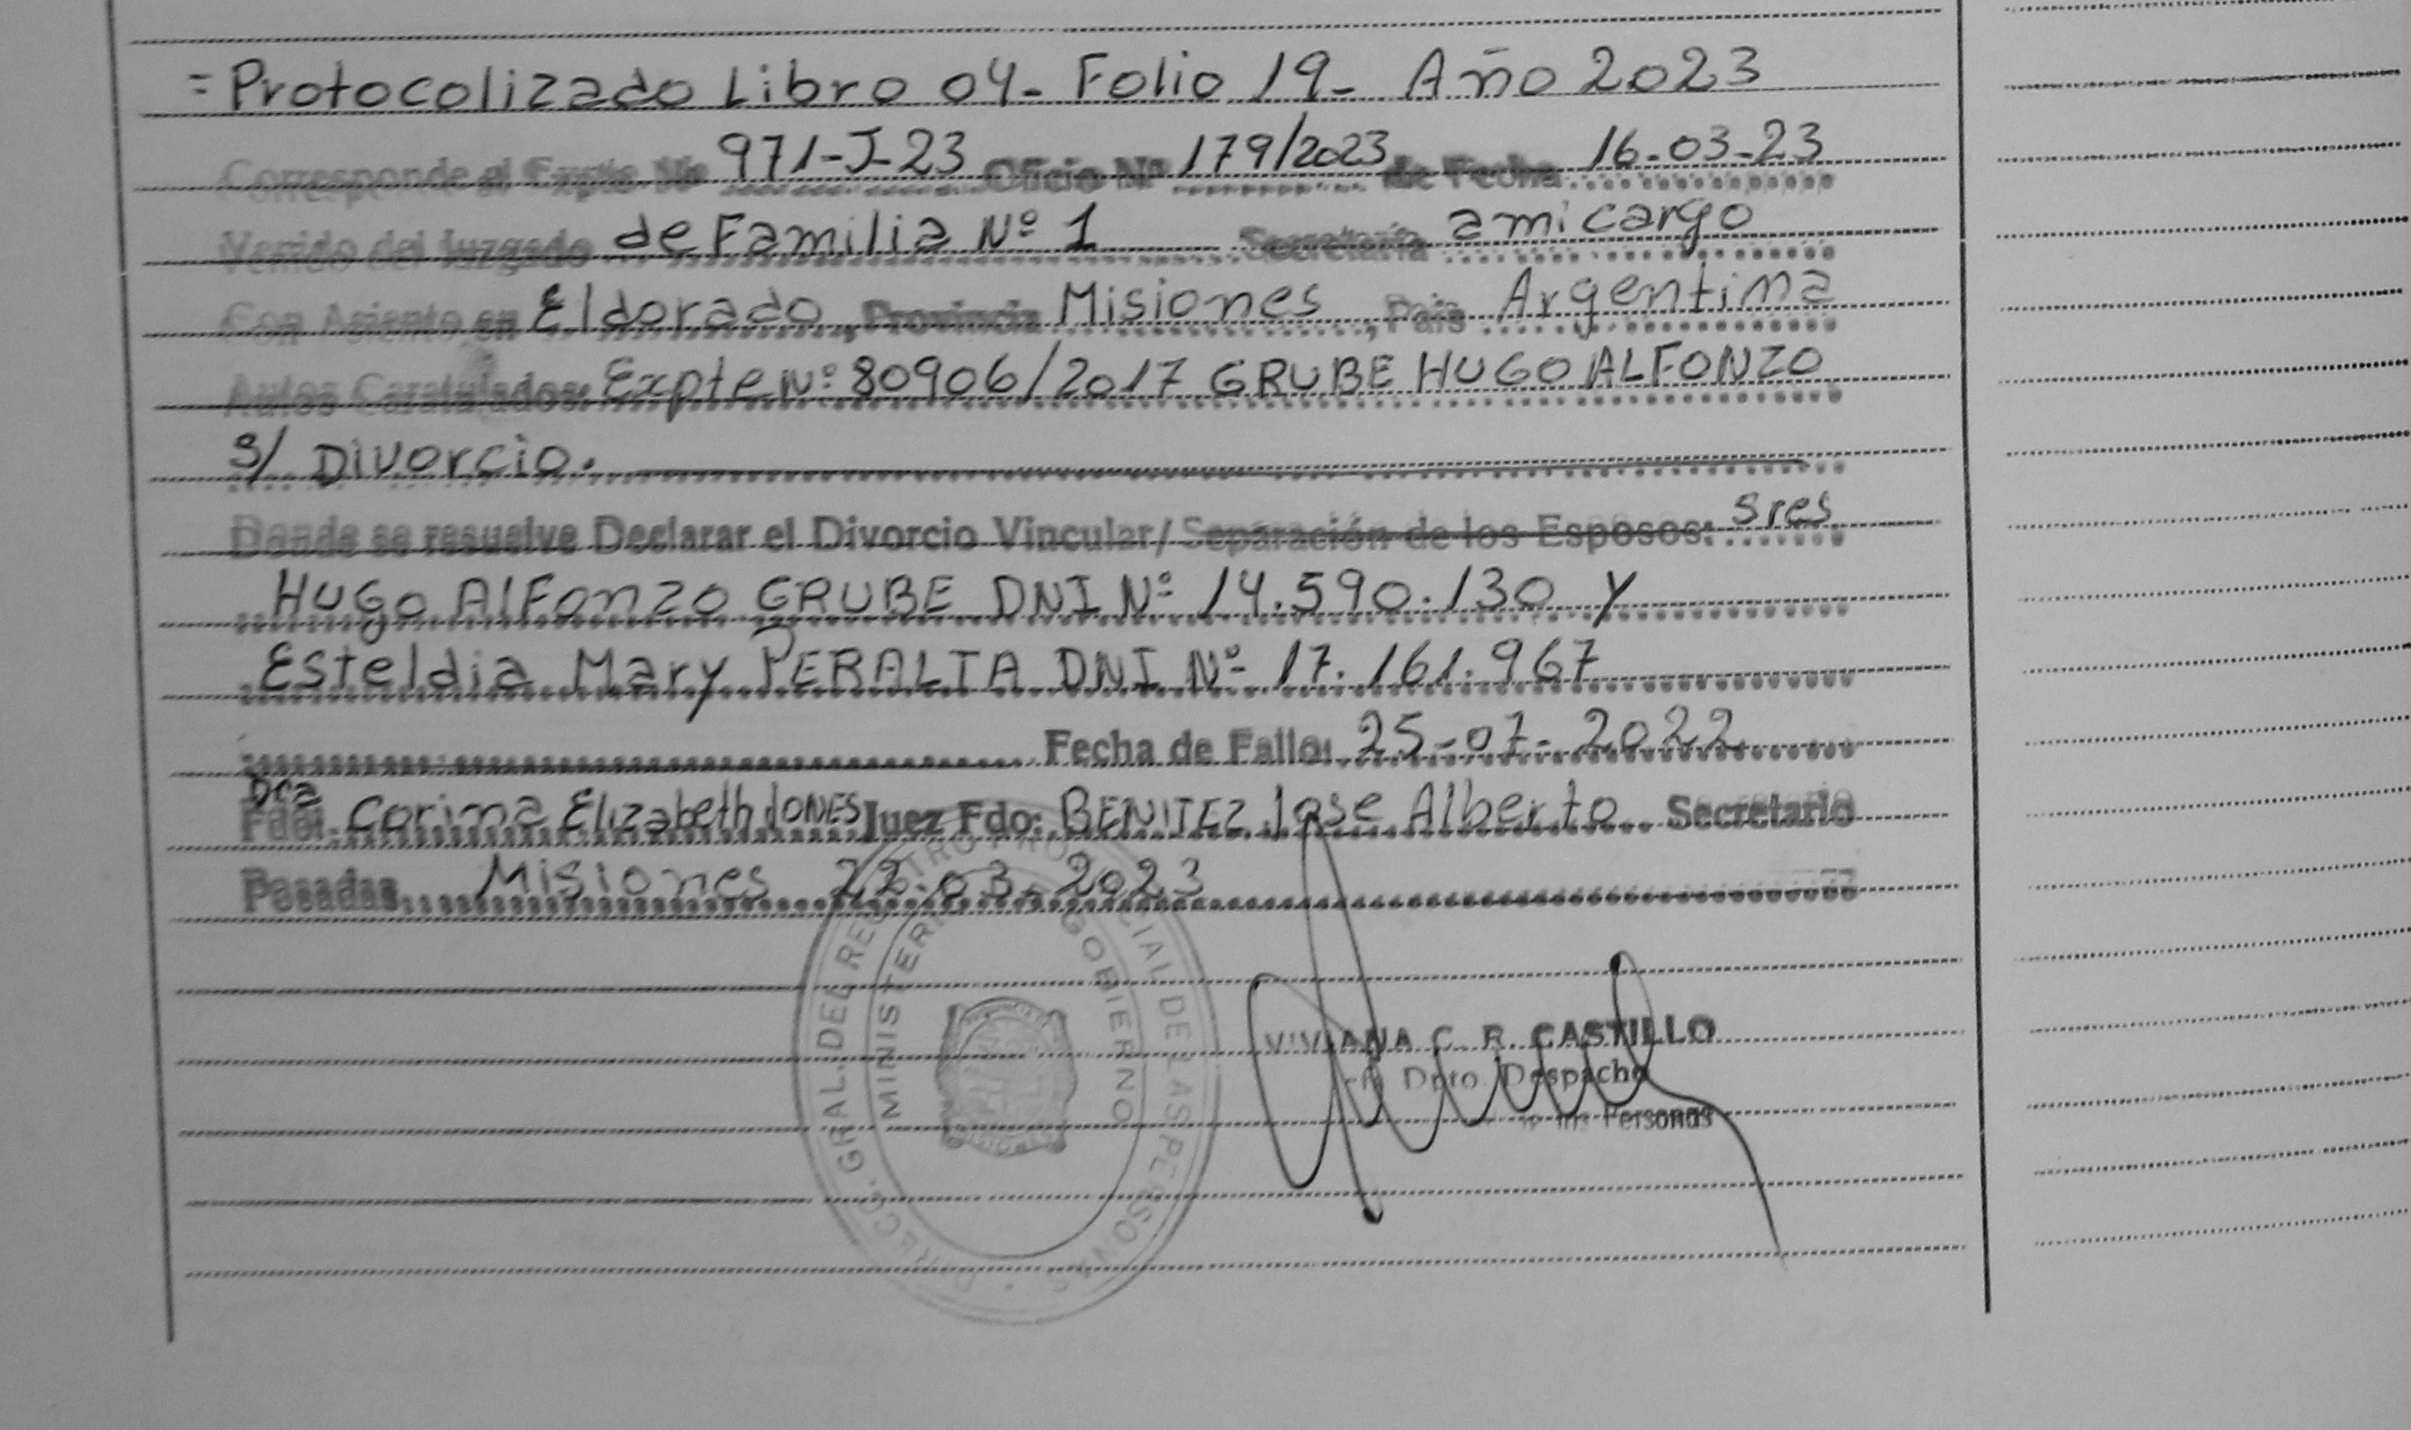 = Protocolizado Libro 04- Folio 19- Año 2023
Corresponde al Expte Nº 971-J-23 Oficio Nº 179/2023 de Fecha 16-03-23
Venido del Juzgado de Familia Nº 1 Secretaría a mi cargo
Con Asiento en Eldorado, Provincia Misiones, País Argentina
Autos Caratulados: Expte Nº 80906/2017 GRUBE HUGO ALFONZO
S/ Divorcio.
Donde se resuelve Declarar el Divorcio Vincular/ Separación de los Esposos: Sres
Hugo Alfonzo GRUBE DNI Nº 14.590.130 y
Esteldia Mary PERALTA DNI Nº 17.161.967
Fecha de Fallo: 25-07-2022
Dra
Fdo: Corina Elizabeth JONES Juez Fdo: BENITEZ Jose Alberto Secretario
Posadas, Misiones 22-03-2023
DIRECC. GRAL. DEL REGISTRO PROVINCIAL DE LAS PERSONAS
MINISTERIO GOBIERNO
VIVIANA C. R. CASTILLO
Dpto. Despacho
las Personas